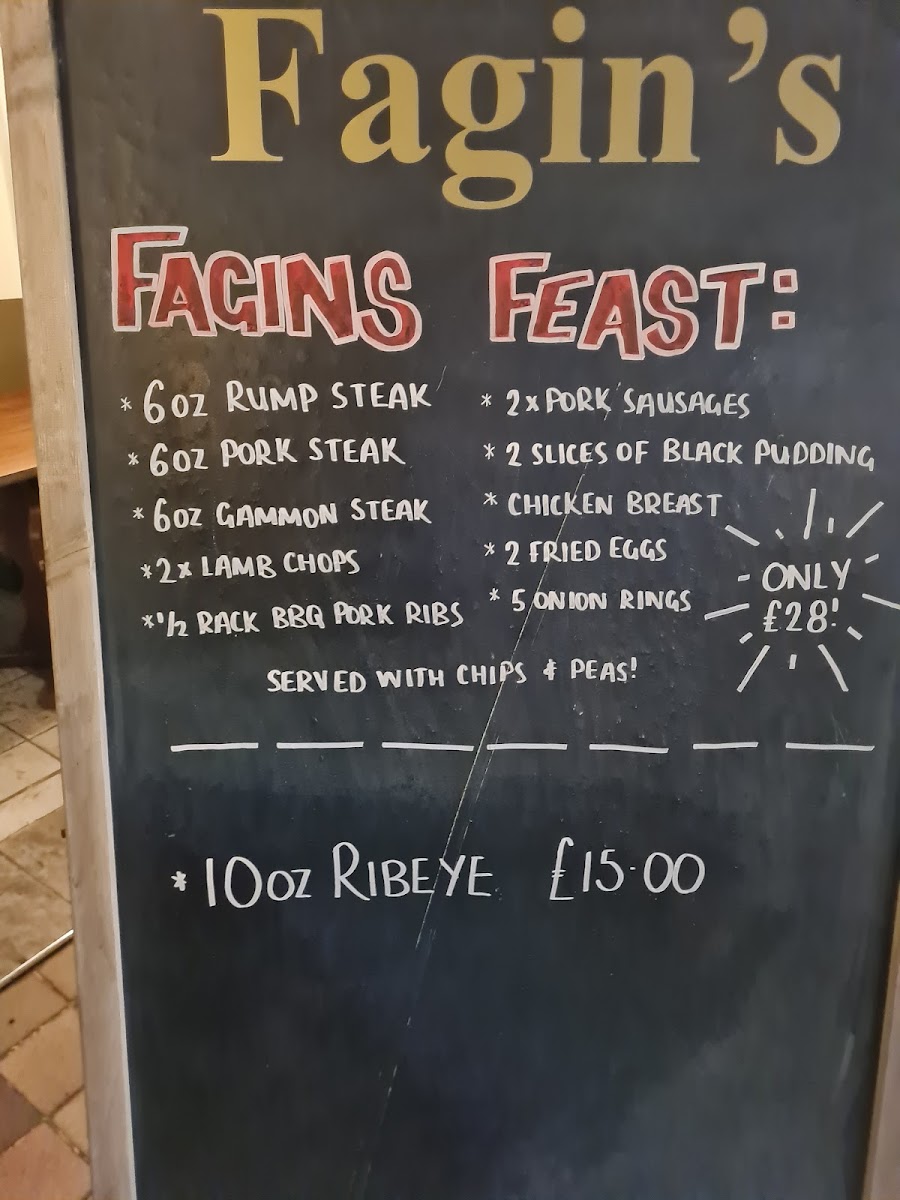 Fagin's
FAGINS FEAST:
* 6oz RUMP STEAK
* 6oz PORK STEAK
* 6oz GAMMON STEAK
* 2x LAMB CHOPS
* 1/2 RACK BBQ PORK RIBS
* 2x PORK SAUSAGES
* 2 SLICES OF BLACK PUDDING
* CHICKEN BREAST
* 2 FRIED EGGS
* 5 ONION RINGS
ONLY
£28!
SERVED WITH CHIPS & PEAS!
* 10oz RIBEYE £15.00